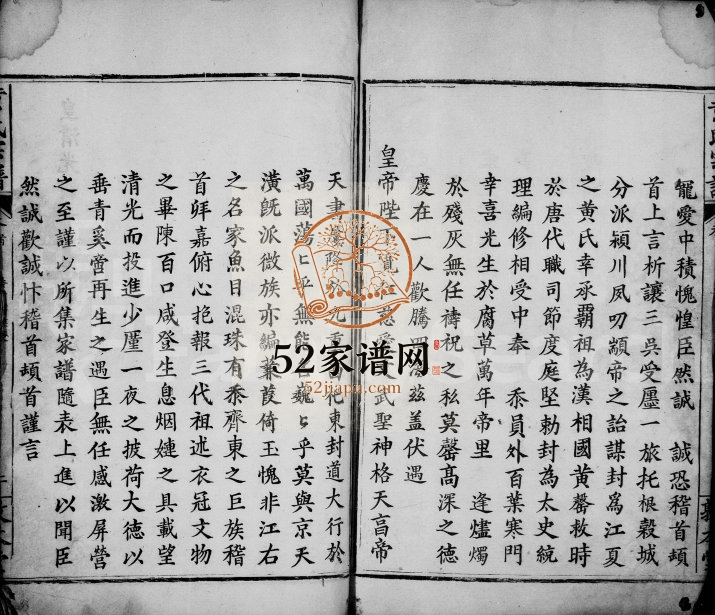 寵愛中積愧惶臣然誠 誠恐稽首頓
首上言析讓三吳受廛一旅托根榖城
分派潁川夙叨顓帝之詒謀封爲江夏
之黄氏幸承覇祖為漢相國黄罄救時
於唐代職司節度庭堅勅封為太史統
理編修相受中奉 忝員外百葉寒門
幸喜光生於腐草萬年帝里 逢燼燭
於殘灰無任禱祝之私莫罄髙深之德
慶在一人歡騰四 兹盖伏遇
皇帝陛下 武聖神格天亯帝
天 東封道大行於
萬國蕩ヒ乎無能 魏ヒ乎莫與京天
潢旣派微族亦編蒹葭倚玉愧非江右
之名家魚目混珠有忝齊東之巨族稽
首拜嘉俯心抱報三代祖述衣冠文物
之畢陳百口咸登生息烟㜕之具載望
清光而投進少廑一夜之披荷大德以
垂青奚啻再生之遇臣無任感激屏營
之至謹以所集家譜隨表上進以聞臣
然誠歡誠忭稽首頓首謹言
52家谱网
52jiapu.com